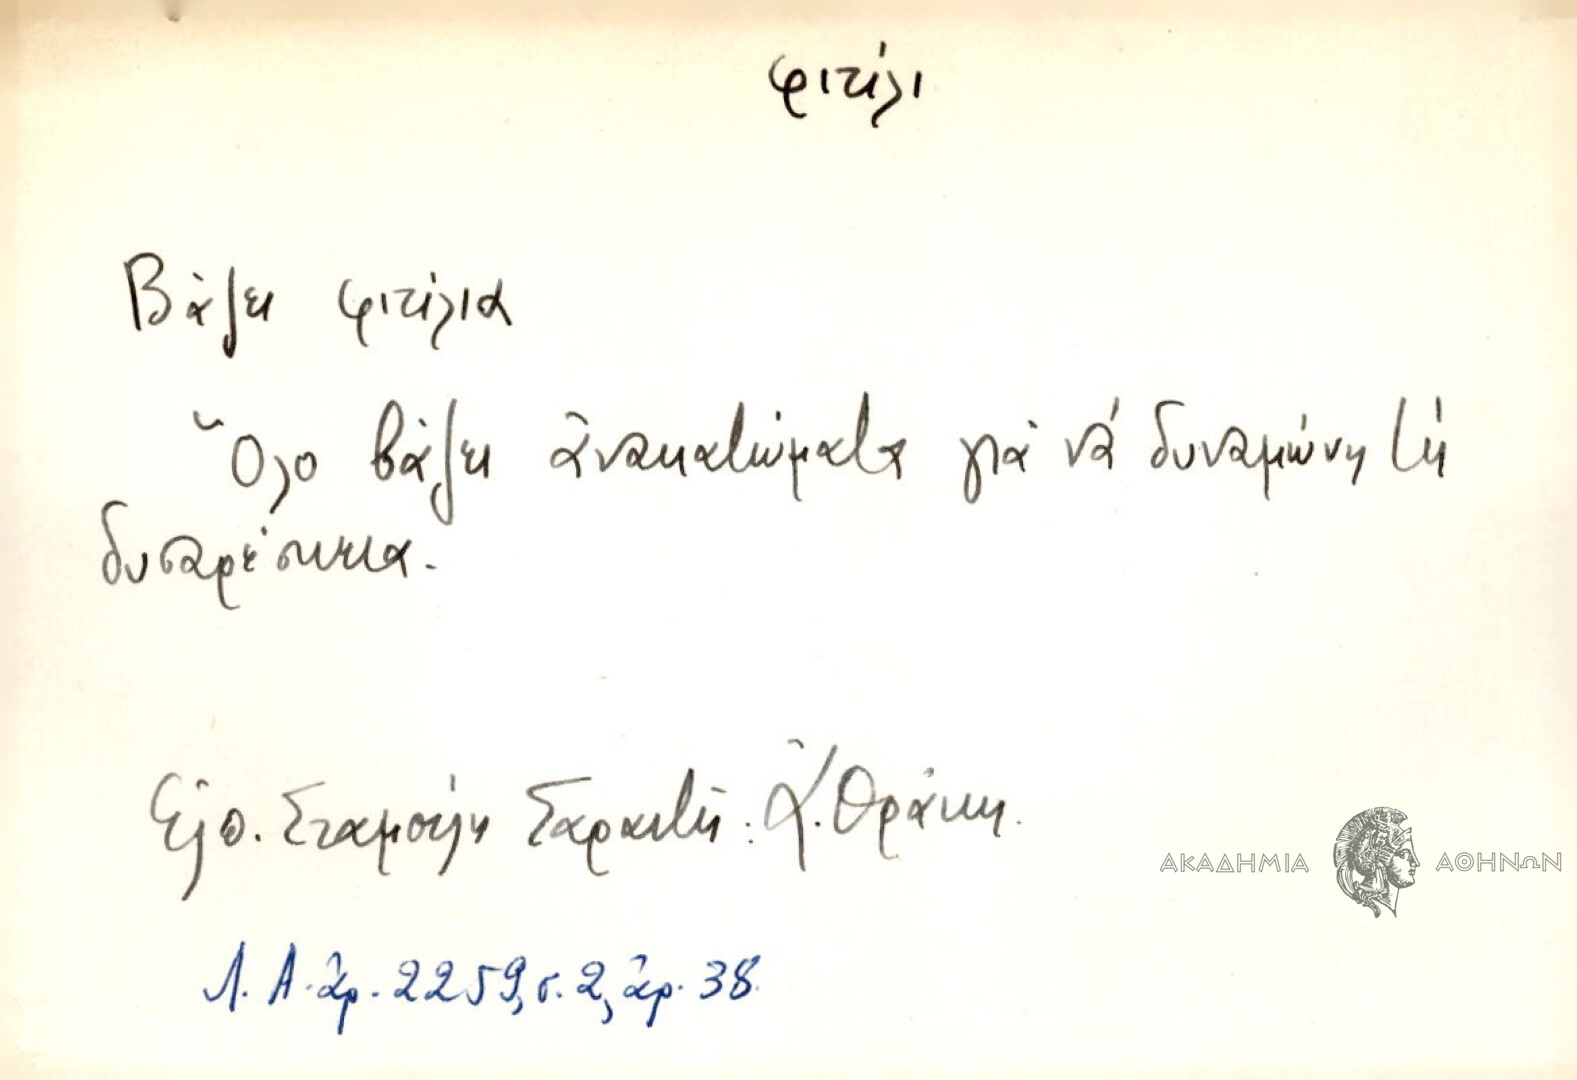 φιτίλι
Βάζει φιτίλια
Ὅλο βάζει ἀνακατώματα γιὰ νά δυναμώνη τή
δυσαρέσκεια.
Ἐλπ. Σταμούλη Σαραντῆ: Ἀ. Θράκη.
Λ. Α. ἀρ. 2259, σ. 2, ἀρ. 38
ΑΚΑΔΗΜΙΑ ΑΘΗΝΩΝ